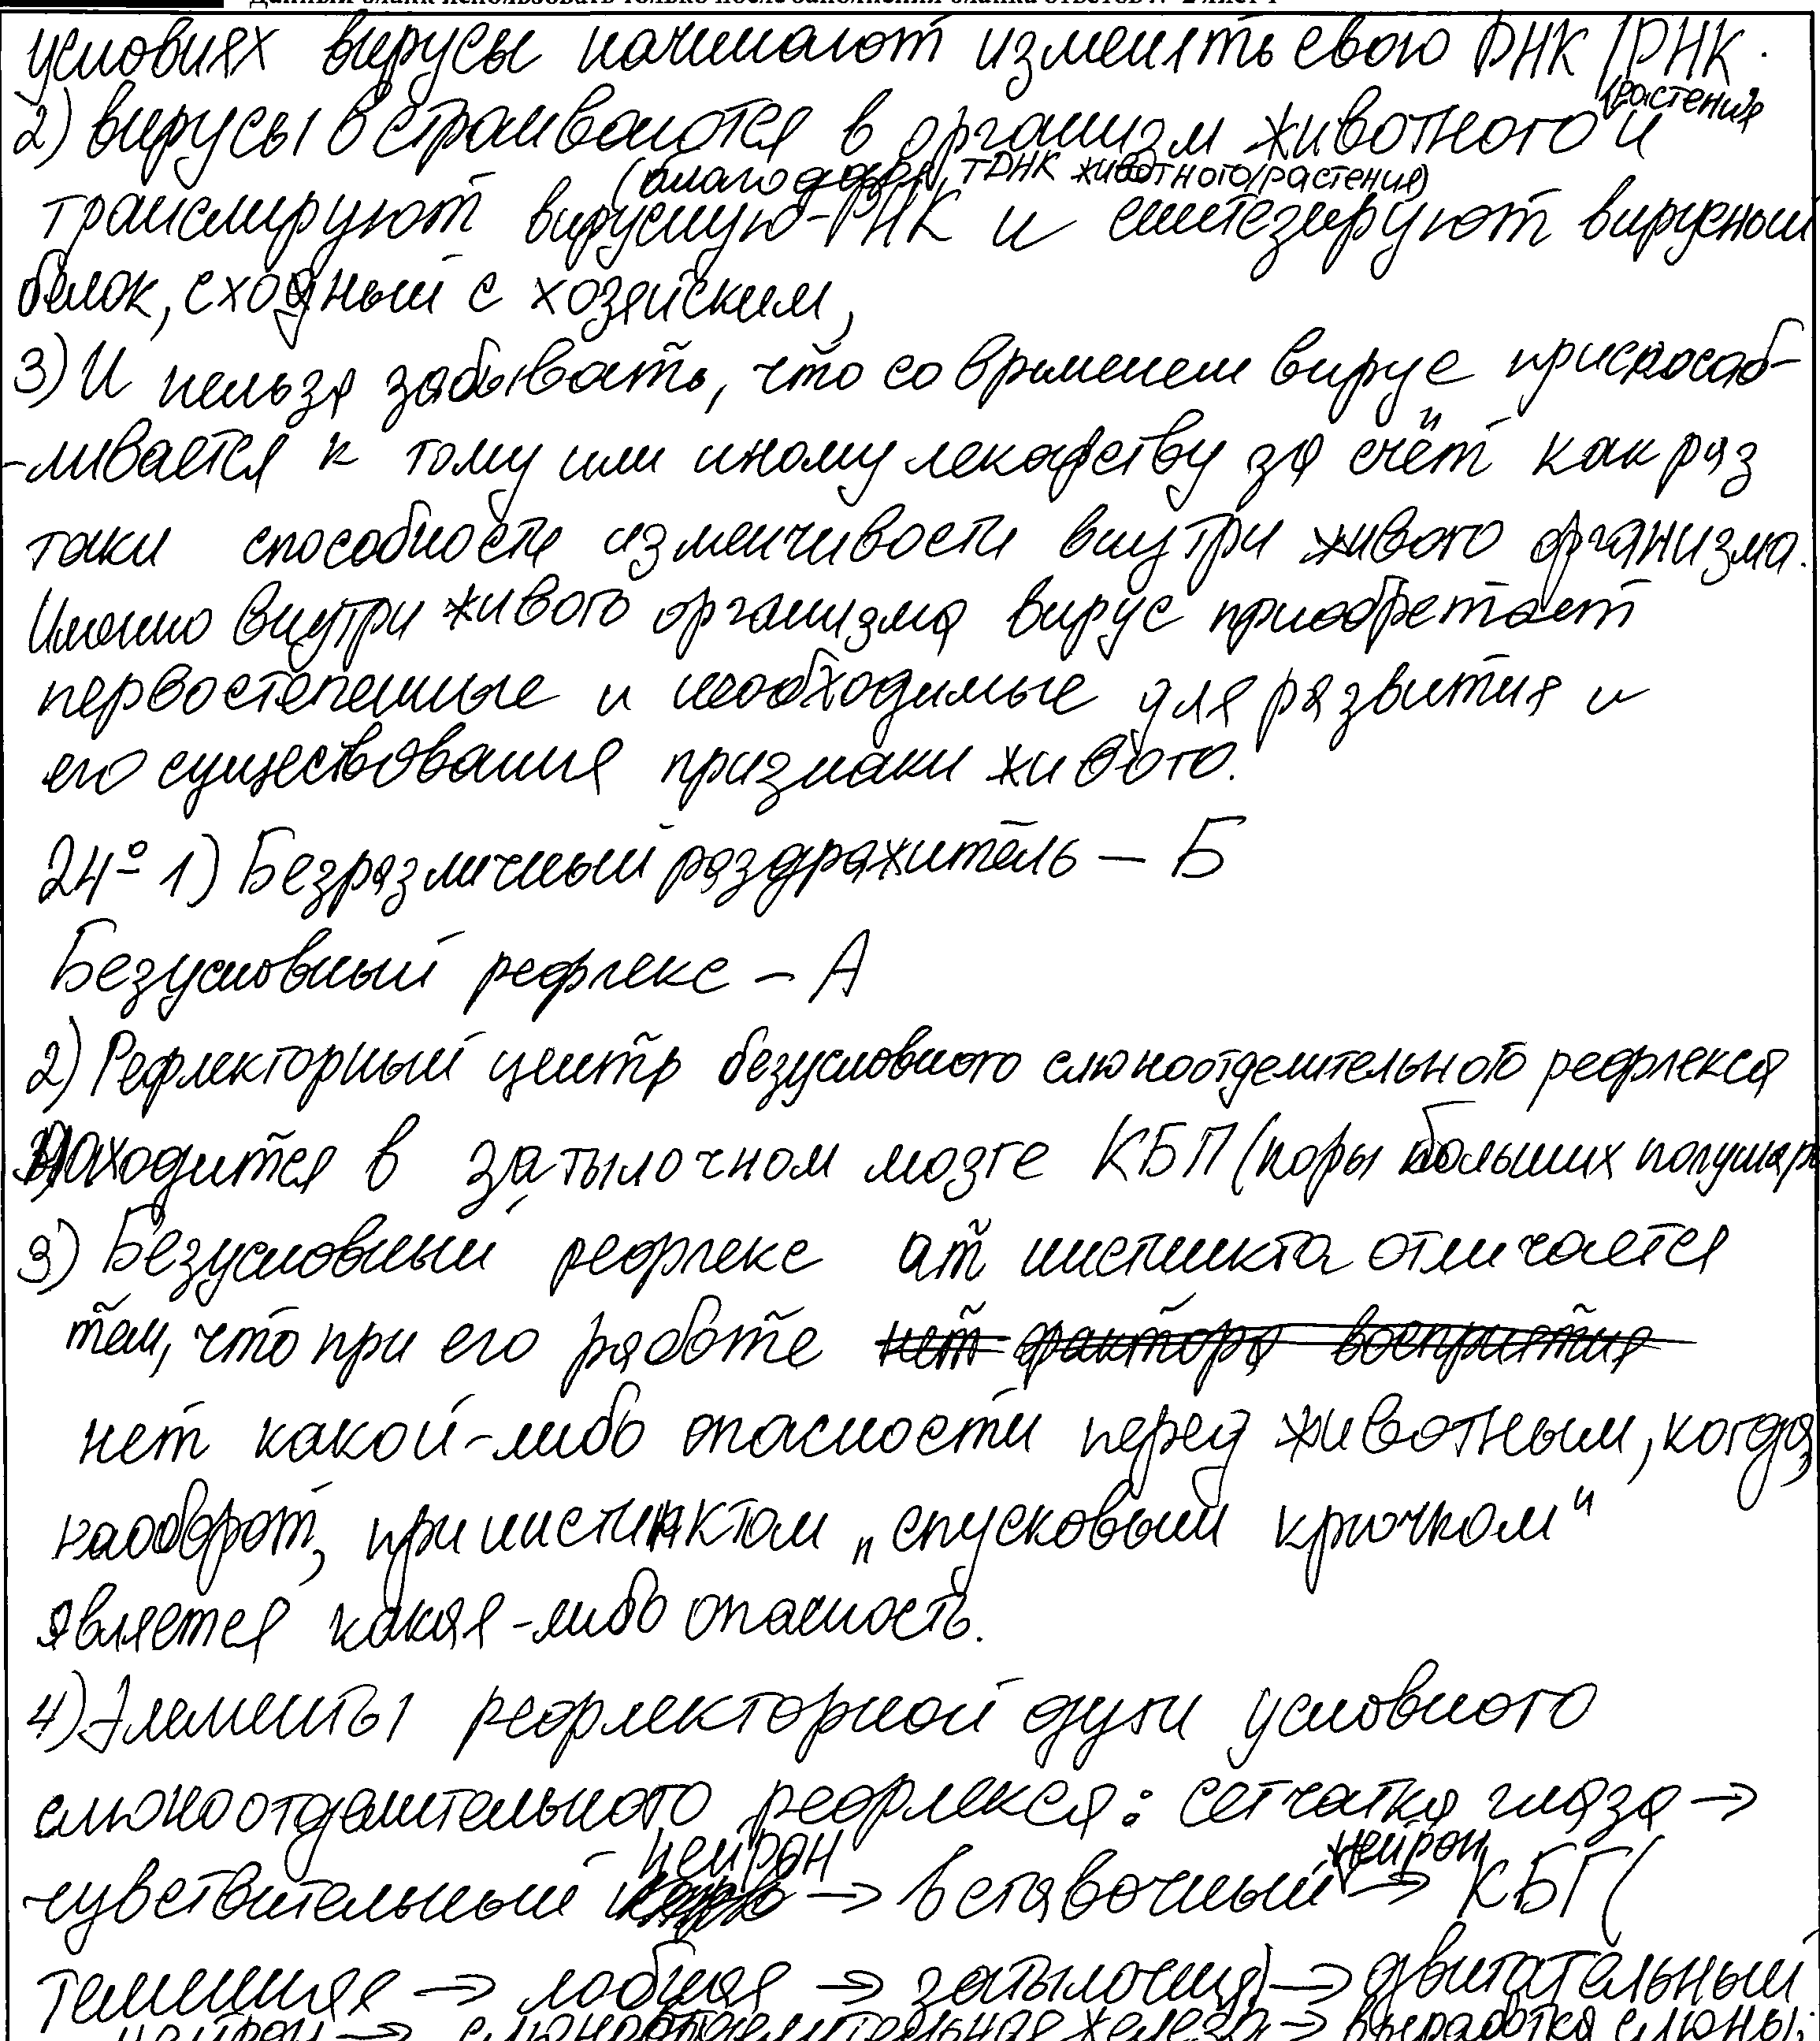 Данный бланк использовать только после заполнения бланка ответов № 2 лист 1
условиях вирусы начинают изменять свою ДНК/РНК.
(растения)
2) вирусы встраиваются в организм животного и
(благодаря тДНК животного/растения)
транслируют вирусную-РНК и синтезируют вирусный
белок, сходный с хозяйским,
3) И нельзя забывать, что со временем вирус приспосаб-
-ливается к тому или иному лекарству за счёт как раз
таки способности изменчивости внутри живого организма.
Именно внутри живого организма вирус приобретает
первостепенные и необходимые для развития и
его существования признаки живого.
24º 1) Безразличный раздражитель – Б
Безусловный рефлекс – А
2) Рефлекторный центр безусловного слюноотделительного рефлекса
находится в затылочном мозге КБП (коры больших полушар
3) Безусловный рефлекс от инстинкта отличается
тем, что при его работе нет фактора восприятия
нет какой-либо опасности перед животным, когда,
наоборот, при инстинктом „спусковым крючком"
является какая-либо опасность.
4) Элементы рефлекторной дуги условного
слюноотделительного рефлекса: сетчатка глаза →
нейрон нейрон
чувствительный → вставочный → КБП(
теменная → лобная → затылочная) → двигательный
нейрон → слюноотделительная железа → выработка слюны.